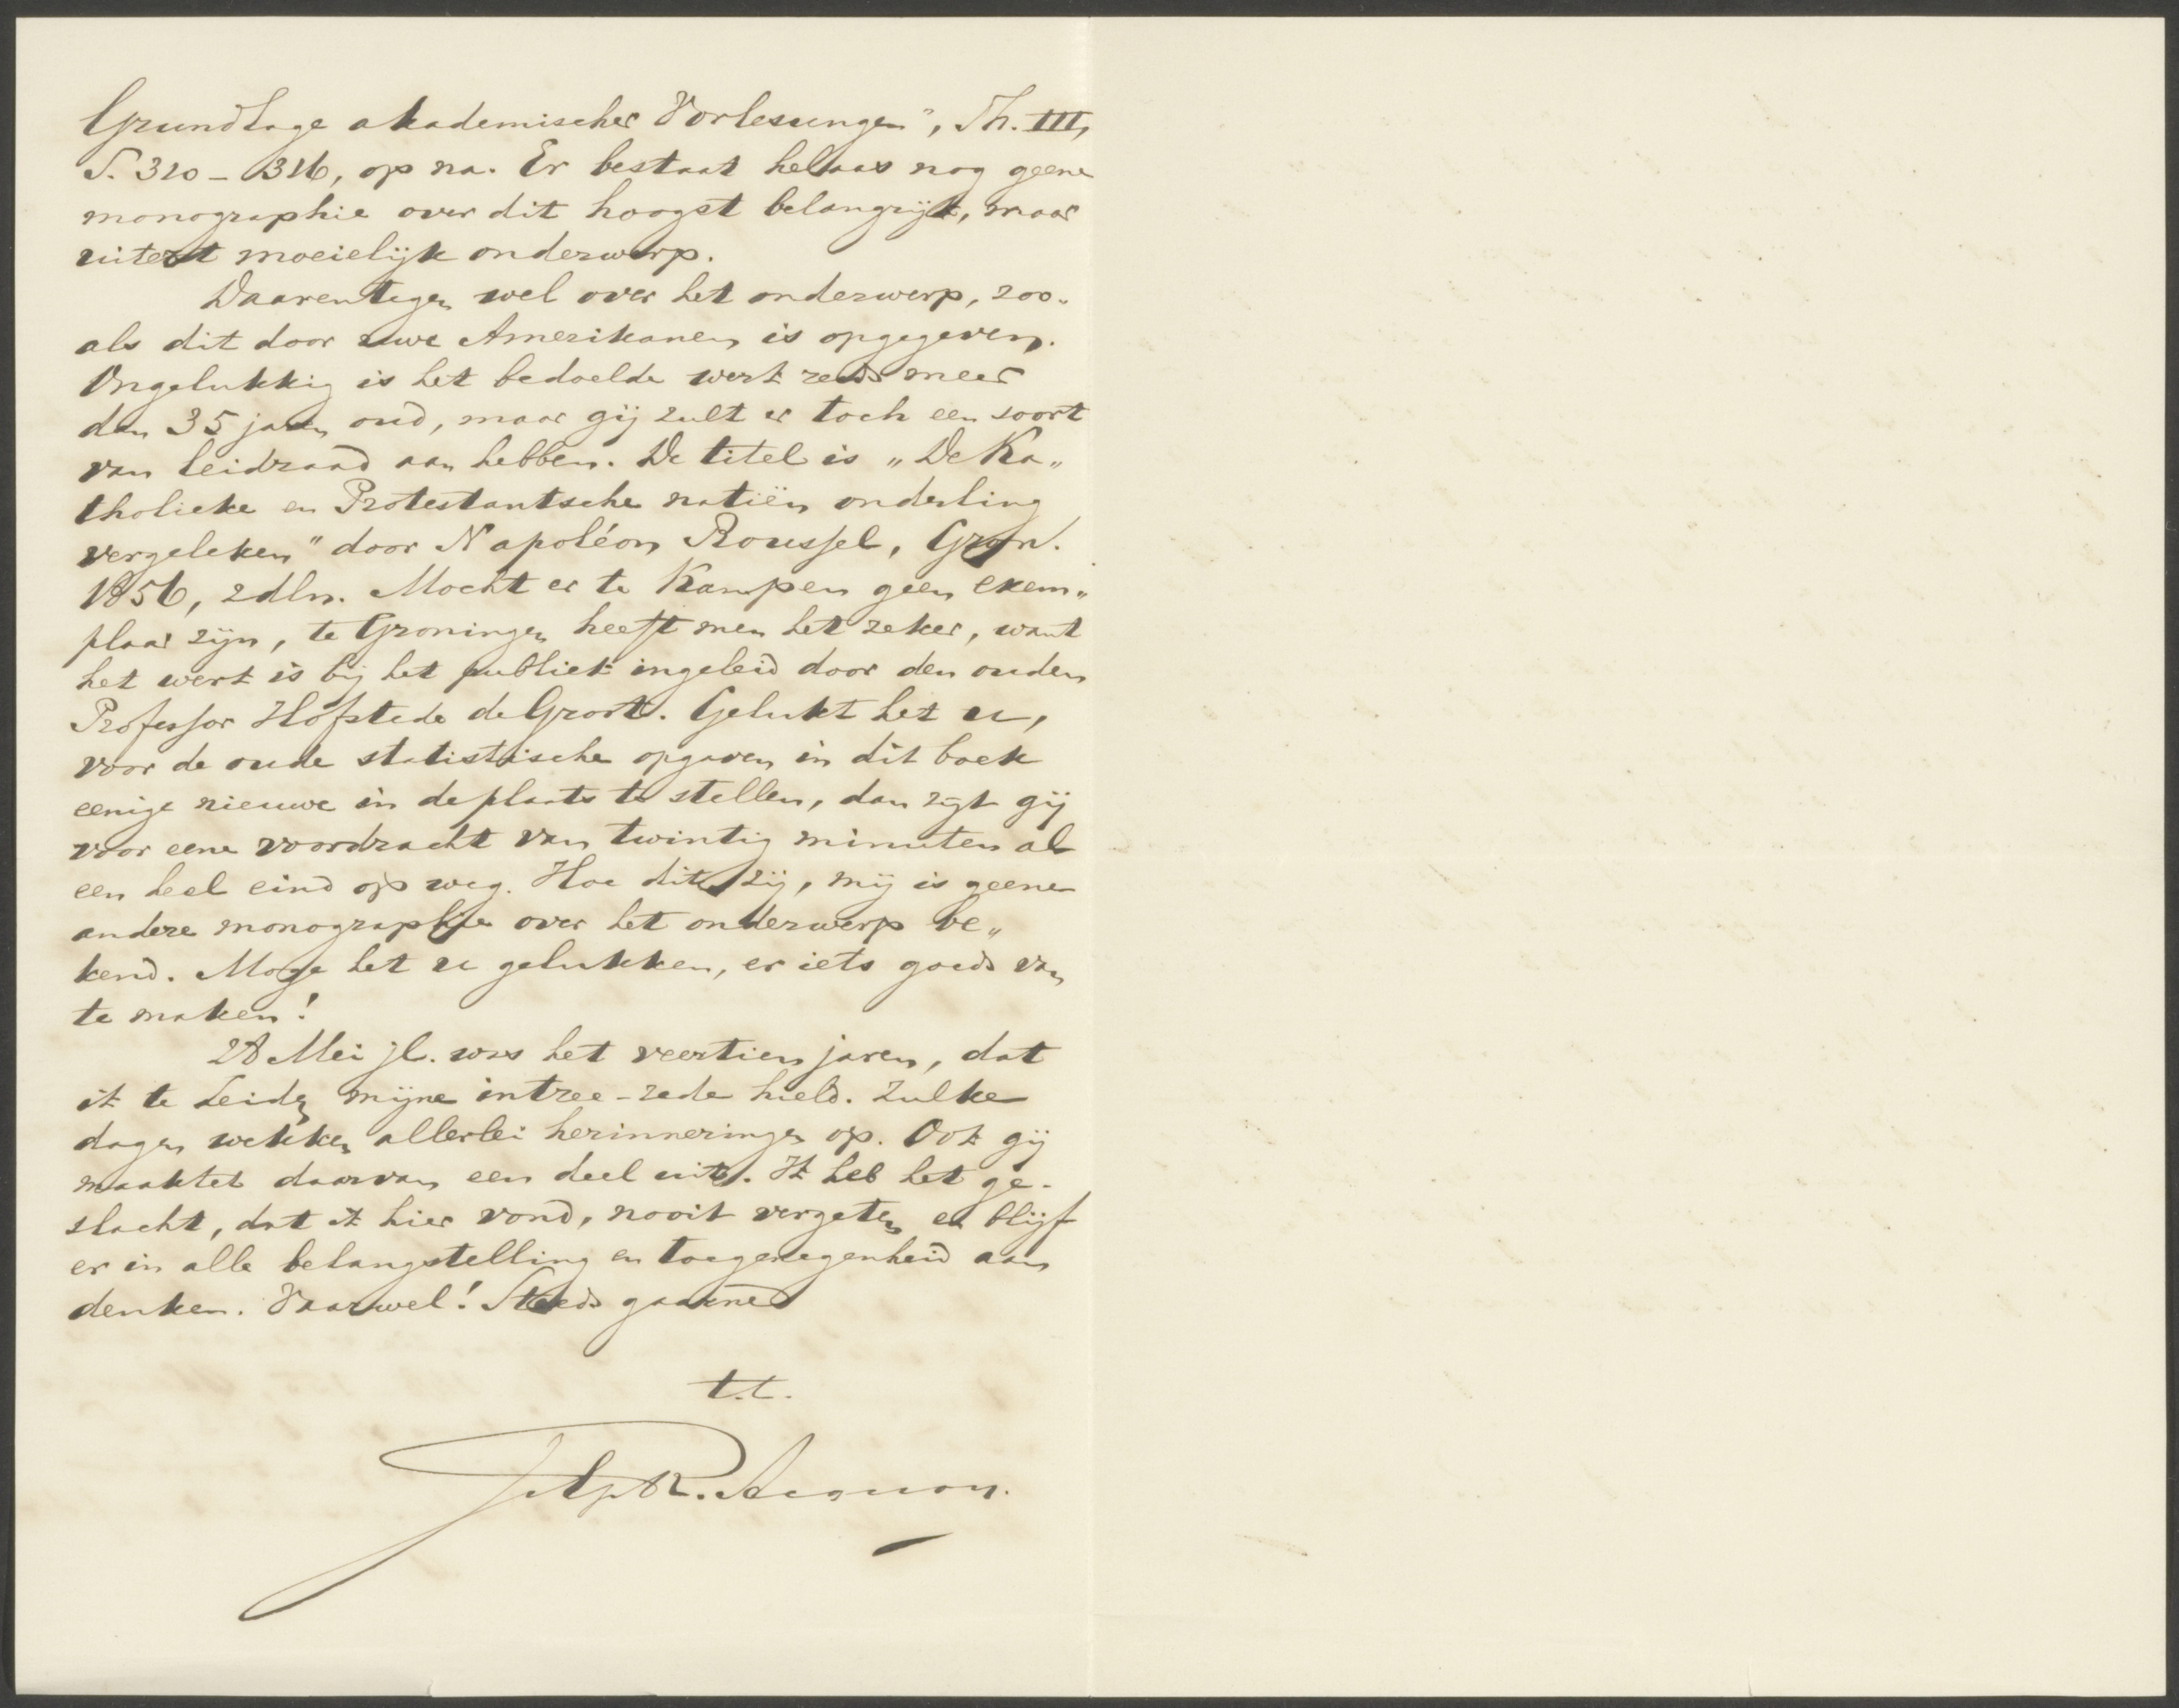 Grundlage akademischer Vorlesungen", Th. III,
S. 320 - 326, op na. Er bestaat helaas nog geene
monographie over dit hoogst belangrijk, maar
uiterst moeielijk onderwerp.
Daarentegen wel over het onderwerp, zoo„
als dit door uwe Amerikanen is opgegeven.
Ongelukkig is het bedoelde werk reeds meer
dan 35 jaren oud, maar gij zult er toch een soort
van leidraad aan hebben. De titel is „De Ka„
tholieke en Protestantsche natiën onderling
vergeleken" door Napoléon Roussel, Gron.
1856, 2 dln. Mocht er te Kampen geen exem„
plaar zijn, te Groningen heeft men het zeker, want
het werk is bij het publiek ingeleid door den ouden
Professor Hofstede de Groot. Gelukt het u,
voor de oude statistische opgaven in dit boek
eenige nieuwe in de plaats te stellen, dan zijt gij
voor eene voordracht van twintig minuten al
een heel eind op weg. Hoe dit zij, mij is geene
andere monographie over het onderwerp be„
kend. Moge het u gelukken, er iets goeds van
te maken!
28 Mei jl. was het veertien jaren, dat
ik te Leiden mijne intree-rede hield. Zulke
dagen wekken allerlei herinneringen op. Ook gij
maaktet daarvan een deel uit. Ik heb het ge-
slacht, dat ik hier vond, nooit vergeten en blijf
er in alle belangstelling en toegenegenheid aan
denken. Vaarwel! Steeds gaarne
t.t.
Acquoy.